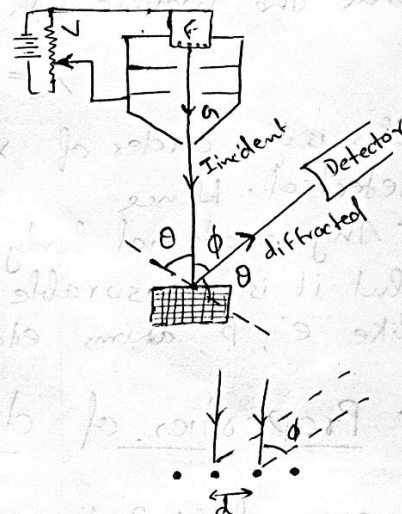 V
F
G
Iincident
Detector
θ
φ
θ
diffracted
φ
d